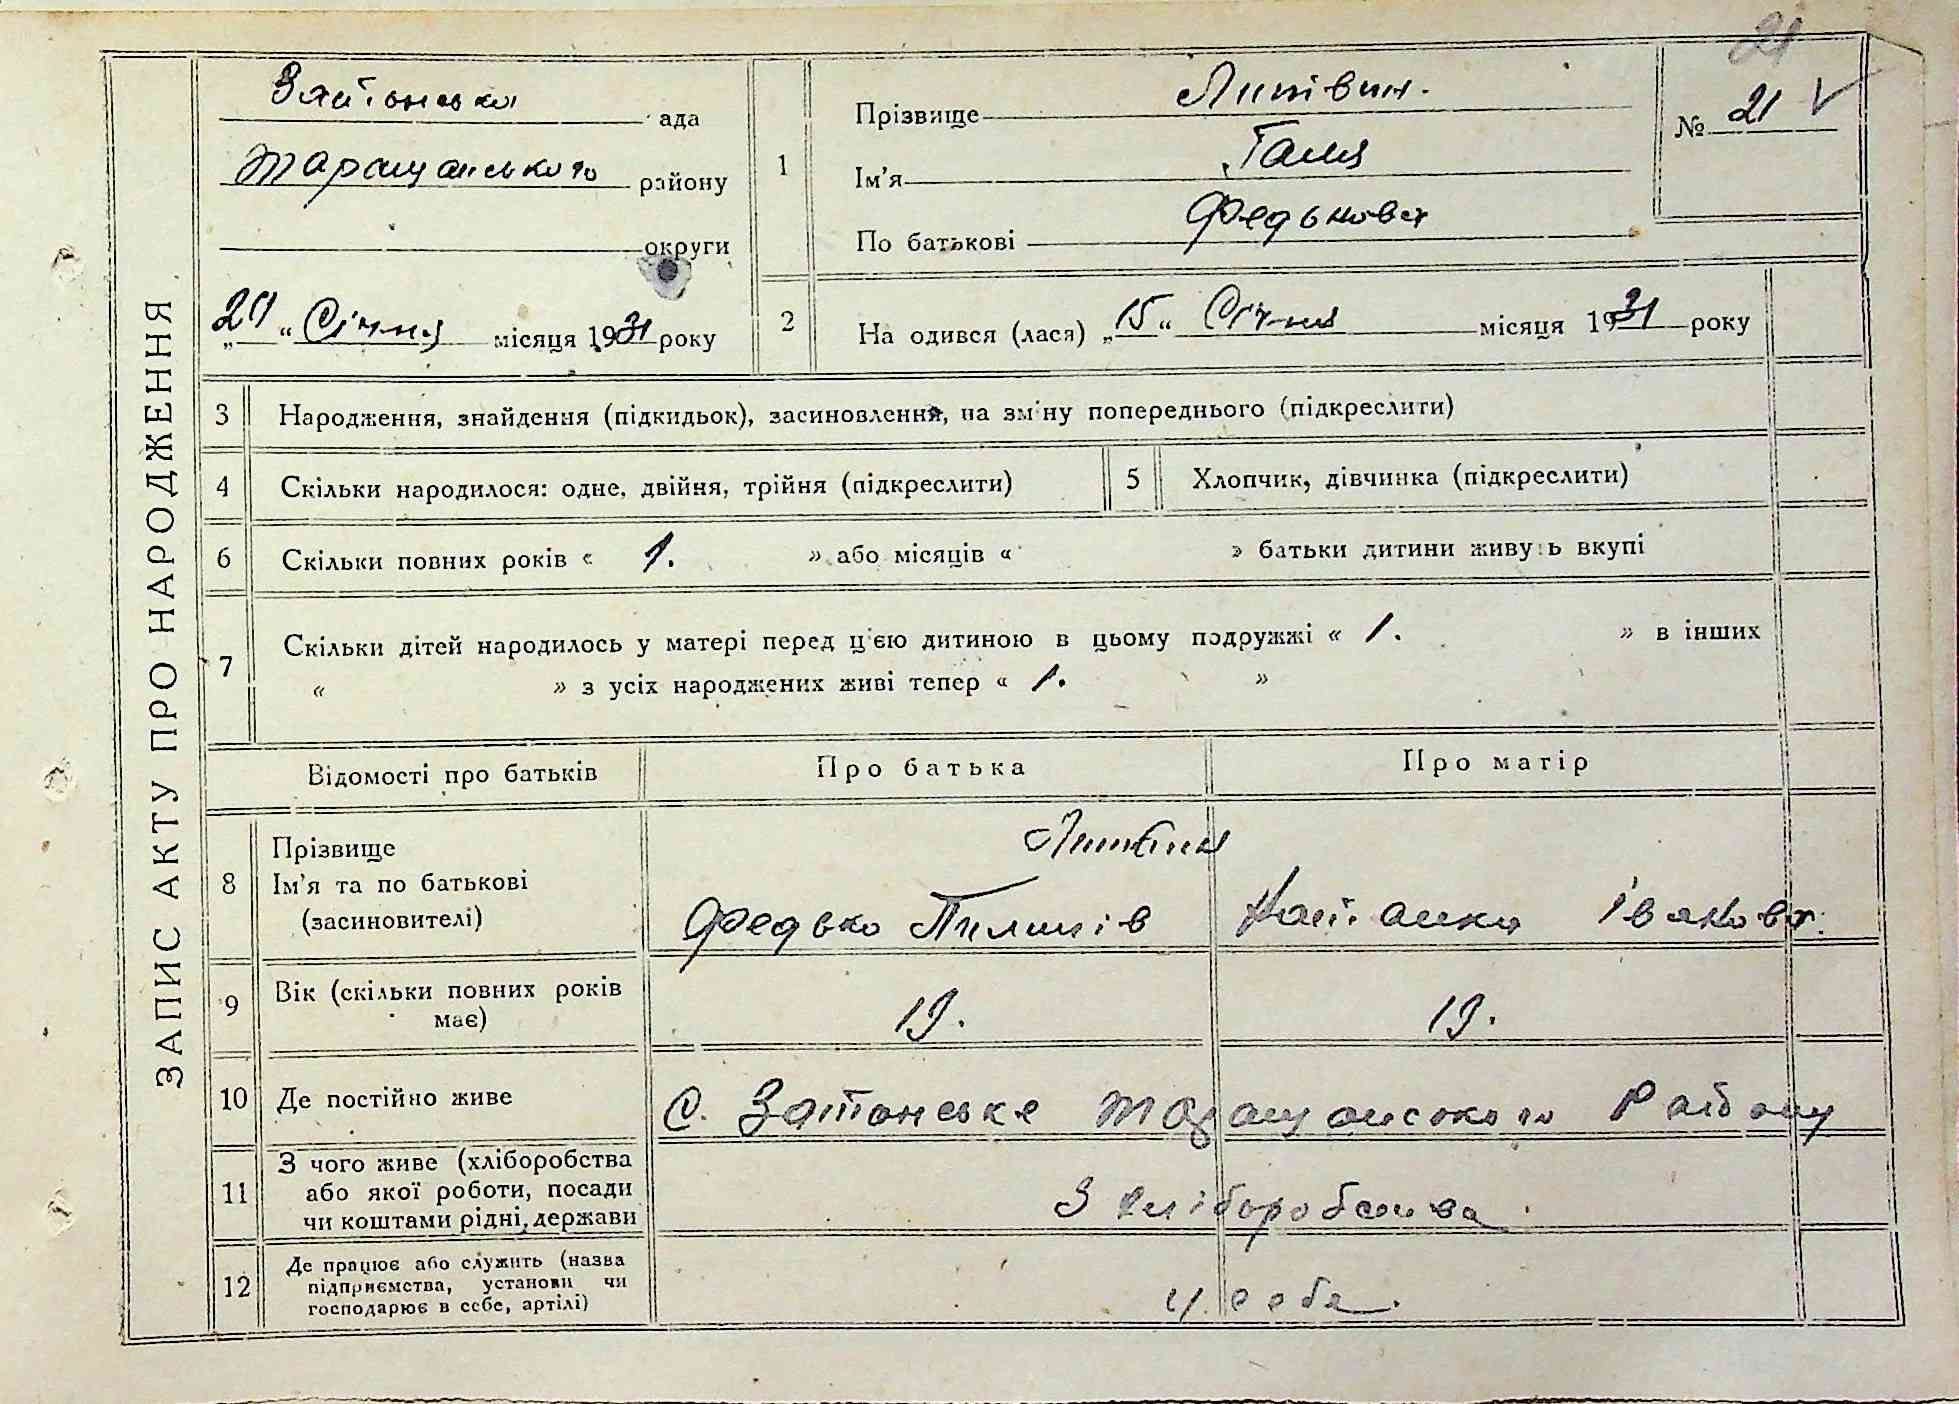 21
ЗАПИС АКТУ ПРО НАРОДЖЕННЯ
Затонська ада
Таращанського району
округи
„ “ Січня місяця 1931 року
1
Прізвище Литвин.
Ім'я Галя
По батькові Федькова
№ 21
2 На одився (лася) „15“ Січня місяця 1931 року
3 Народження, знайдення (підкидьок), засиновлення, на зміну попереднього (підкреслити)
4 Скільки народилося: одне, двійня, трійня (підкреслити)
5 Хлопчик, дівчинка (підкреслити)
6 Скільки повних років « 1. » або місяців « » батьки дитини живуть вкупі
7 Скільки дітей народилось у матері перед цією дитиною в цьому подружжі « 1. » в інших
« » з усіх народжених живі тепер « 1. »
Відомості про батьків Про батька Про матір
8 Прізвище Литвин
Ім'я та по батькові
(засиновителі) Федько Пилипів Івакова.
9 Вік (скільки повних років
має) 19. 19.
10 Де постійно живе С. Затонське Таращанського Району
11 З чого живе (хліборобства
або якої роботи, посади
чи коштами рідні, держави З хліборобства
12 Де працює або служить (назва
підприємства, установи чи
господарює в себе, артілі) у себе.